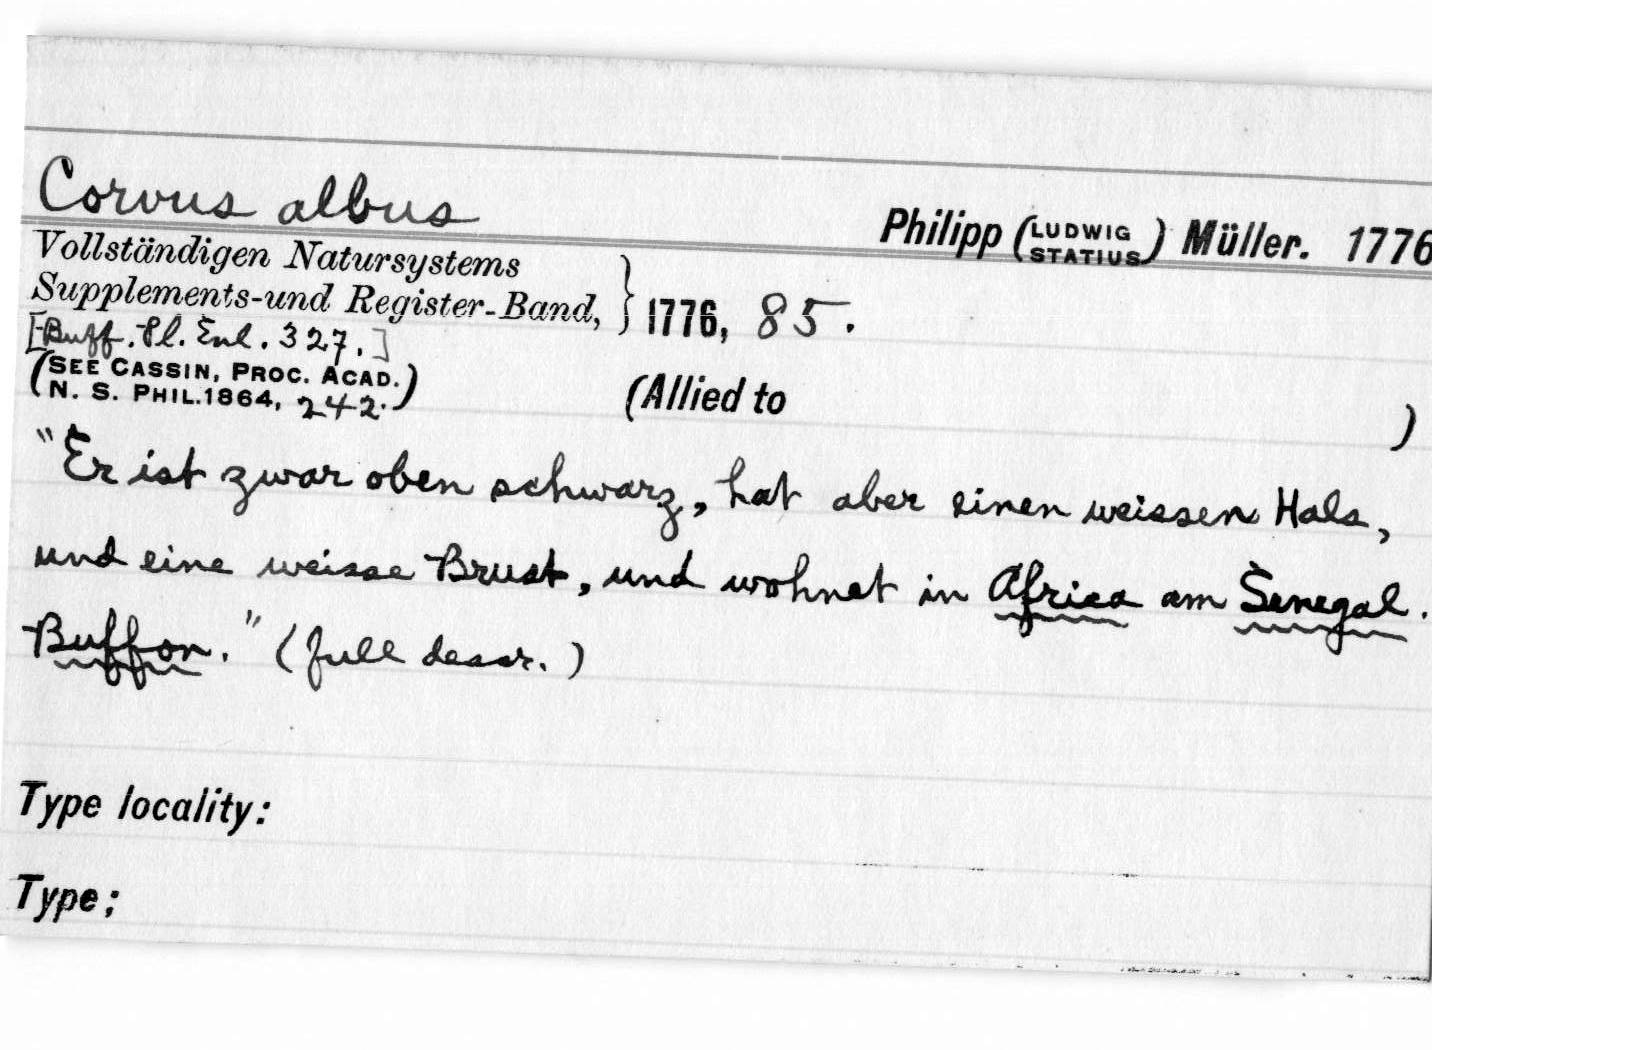 Corvus albus
Philipp (LUDWIG STATIUS) Müller. 1776
Vollständigen Natursystems
Supplements-und Register-Band, } 1776, 85.
[Buff. Pl. Enl. 327.]
(SEE CASSIN, PROC. ACAD.
N. S. PHIL. 1864, 242.)
(Allied to )
"Er ist zwar oben schwarz, hat aber einen weissen Hals,
und eine weisse Brust, und wohnet in Africa am Senegal.
Buffon." (full descr.)
Type locality:
Type;